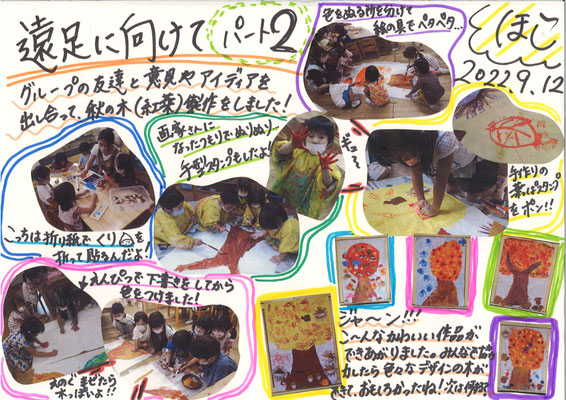 遠足に向けて パート2
ほし
2022.9.12
グループの友達と意見やアイディアを
出し合って、秋の木(紅葉)製作をしました!
色をぬる所を分けて
絵の具でペタペタ…
画家さんに
なったつもりでぬりぬり…
手型スタンプもしたよ!
ギュー
手作りの
葉っぱスタンプ
をポン!!
こっちは折り紙でくりを
折って貼るんだよ!
えんぴつで下書きをしてから
色をつけました!
えのぐまぜたら
木っぽいよ!!
ジャ〜ン!!!
こ〜んなかわいい作品が
できあがりました。みんなで協
力したら色々なデザインの木が
できて、おもしろかったね!次は何